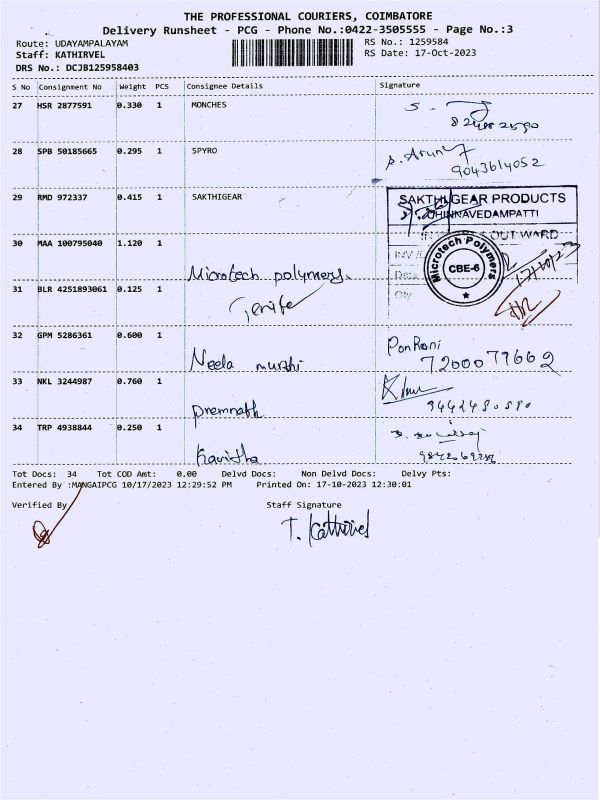 THE PROFESSIONAL COURIERS, COIMBATORE
Delivery Runsheet - PCG - Phone No.:0422-3505555 - Page No.:3
Route: UDAYAMPALAYAM RS No.: 1259584
Staff: KATHIRVEL RS Date: 17-Oct-2023
DRS No.: DCJB125958403
S No Consignment No Weight PCS Consignee Details Signature
27 HSR 2877591 0.330 1 MONCHES
28 SPB 50185665 0.295 1 SPYRO
S. Arun
9043614052
29 RMD 972337 0.415 1 SAKTHIGEAR
SAKTHI GEAR PRODUCTS
CHINNAVEDAMPATTI
OUT WARD
30 MAA 100795040 1.120 1
Microtech polymers
Microtech Polymers
CBE-6
31 BLR 4251893061 0.125 1
32 GPM 5286361 0.600 1
Neela murthi
PonRani
7200079662
33 NKL 3244987 0.760 1
premnath
34 TRP 4938844 0.250 1
Kavitha
Tot Docs: 34 Tot COD Amt: 0.00 Delvd Docs: Non Delvd Docs: Delvy Pts:
Entered By :MANGAIPCG 10/17/2023 12:29:52 PM Printed On: 17-10-2023 12:30:01
Verified By Staff Signature
T. Kathirvel